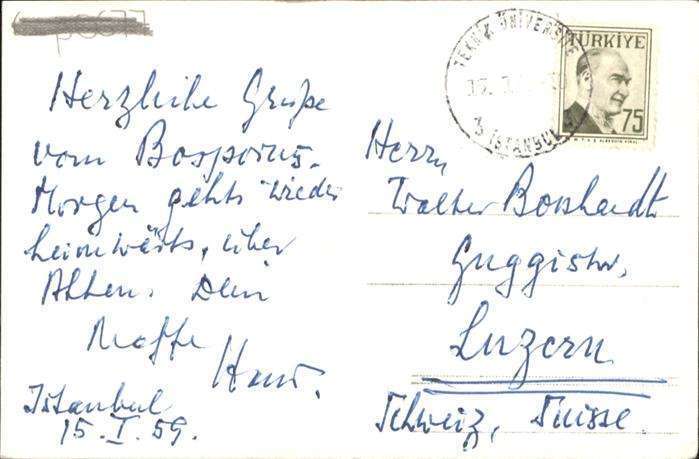 Herzliche Grüße
vom Bosporus.
Morgen gehts wieder
heimwärts, über
Athen. Dein
Neffe
Hans.
Istanbul
15. I. 59.
TEKNİK ÜNİVERSİTE
İSTANBUL
TÜRKİYE
75
Herrn
Walter Bosshardt
Guggistr,
Luzern
Schweiz, Suisse.